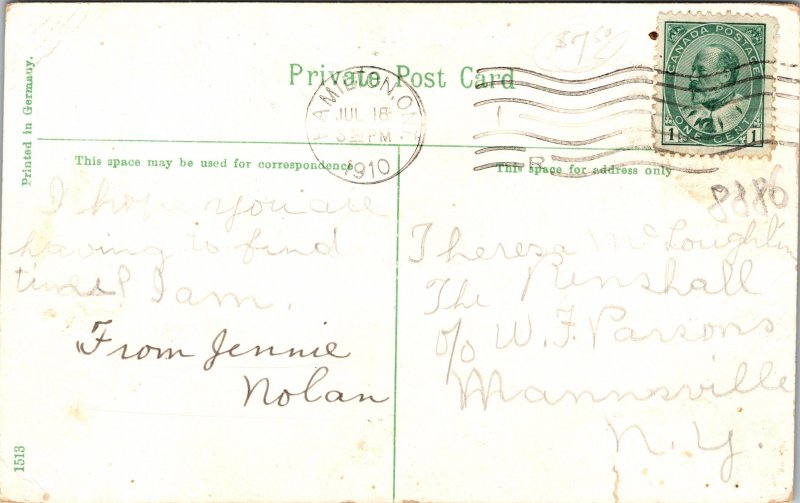 $7.50
Private Post Card
CANADA POSTAGE
1 ONE CENT 1
HAMILTON, ONT.
JUL 18
PM
1910
R
Printed in Germany.
This space may be used for correspondence
This space for address only
8886
I hope you are
having to find
time I am.
From Jennie
Nolan
Theresa McLoughlin
The Renshall
o/o W. F. Parsons
Mannsville
N. Y.
1513